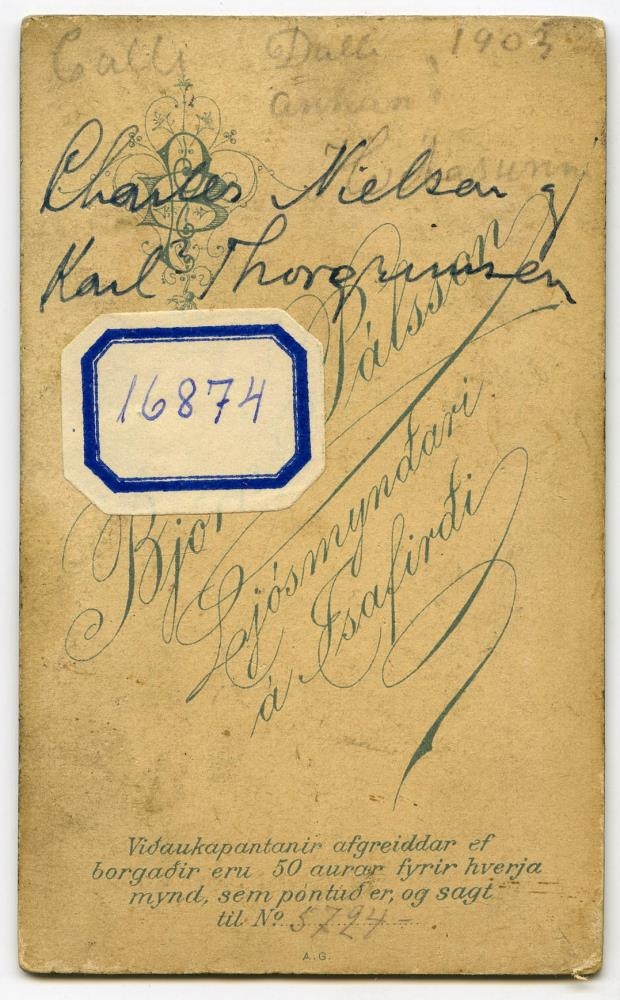 Calli Dalli 1903
annan
Charles Nielsen og
Karl Thorgrimsen
16874
Pálsson
Ljósmyndari
á Ísafirði
Viðaukapantanir afgreiddar ef
borgaðir eru 50 aurar fyrir hverja
mynd, sem pöntuð er, og sagt
til No. 5724
A.G.